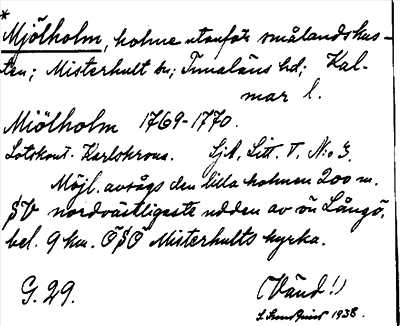 *
Mjölholm, holme utanför smålandskus-
ten; Misterhult sn; Tunaläns hd; Kal-
mar l.
Miölholm 1769-1770.
Lotskont. Karlskrona. SjA, Litt. V, N:o 3.
Möjl. avsågs den lilla holmen 200 m.
SV nordvästligaste udden av ön Långö,
bel. 9 km. OSO Misterhults kyrka.
G. 29.
(Vänd!)
1938.